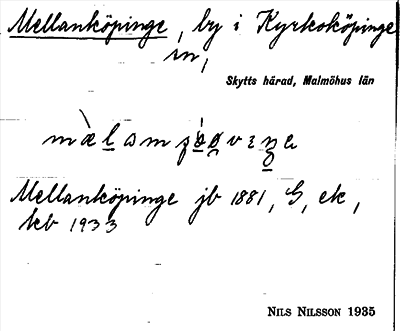 Mellanköpinge, by i Kyrkoköpinge
sn,
Skytts härad, Malmöhus län
Mellanköpinge jb 1881, G, ek,
tkb 1933
NILS NILSSON 1935